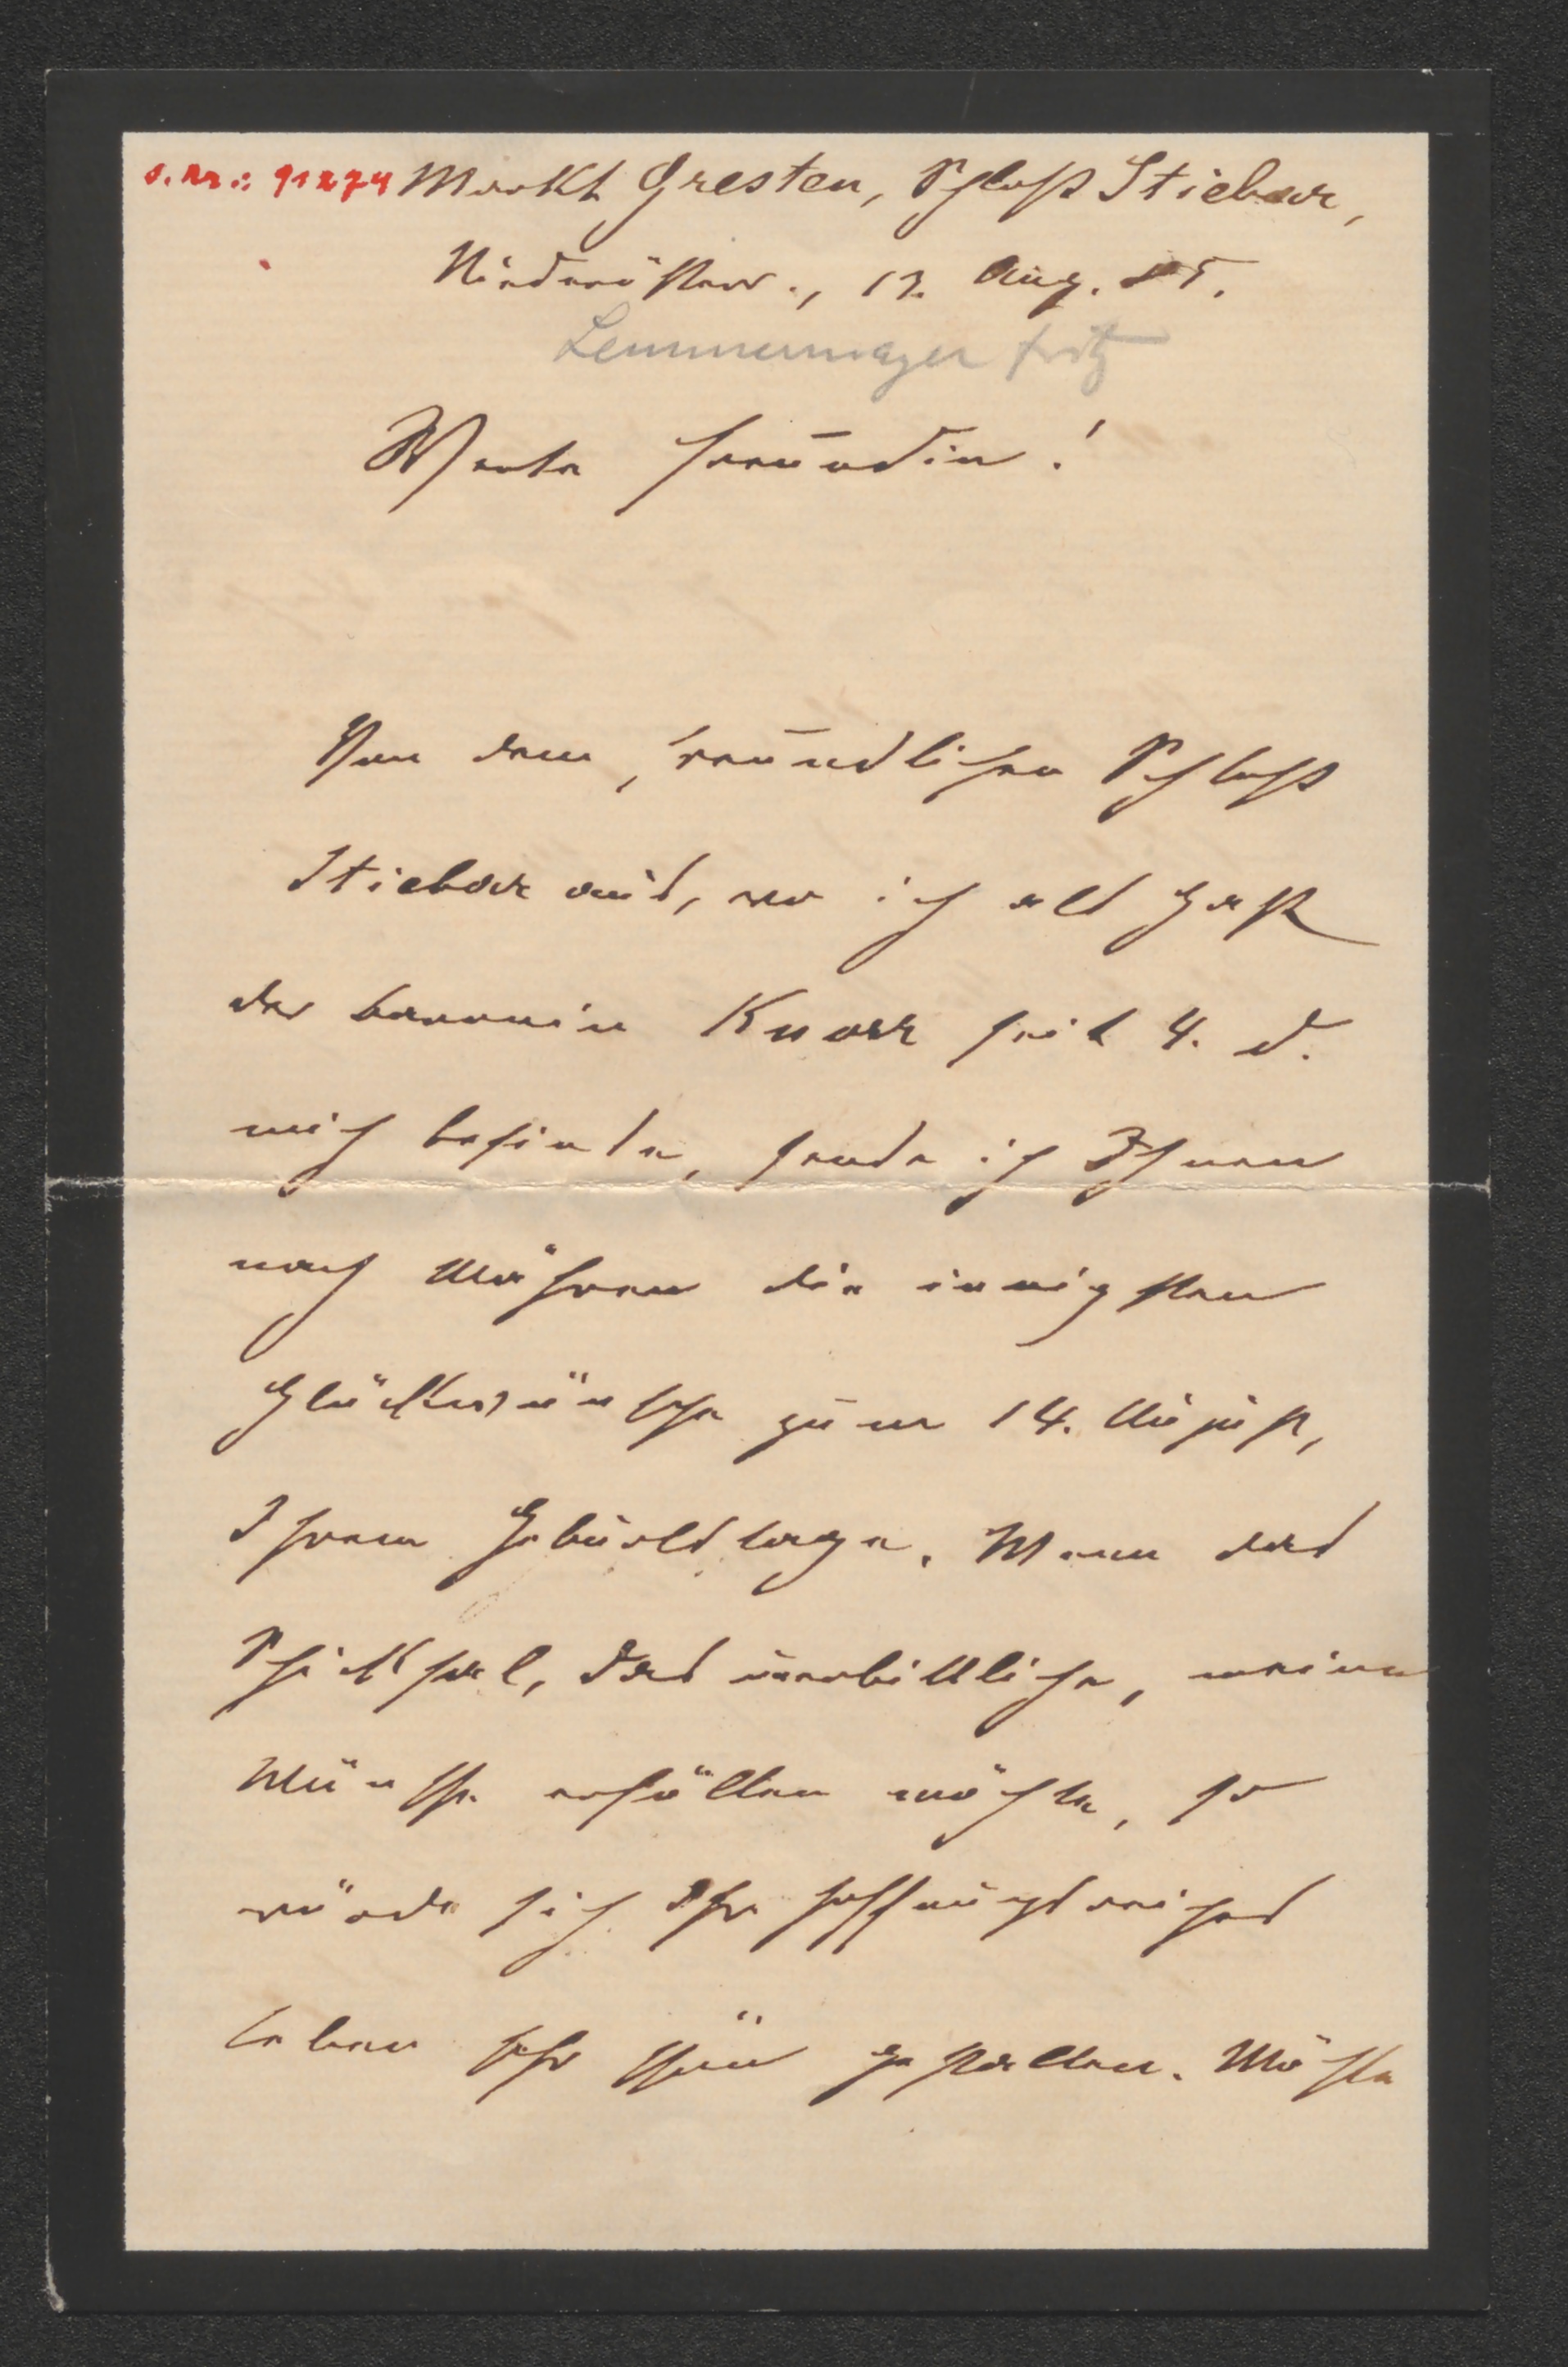 J. Nr.: 91274 Markt Gresten, Schloß Stiebar,
Niederösterr., 13. Aug. 85.
Lemmermayer Fritz
Werte Freundin!
Von dem freundlichen Schloß
Stiebar aus, wo ich als Gast
der Baronin Knorr seit 4. d.
mich befinde, sende ich Ihnen
nach Mähren die innigsten
Glückwünsche zum 14. August,
Ihrem Geburtstage. Wenn das
Schicksal, das unerbittliche, meine
Wünsche erfüllen möchte, so
würde sich Ihr hoffnungsreiches
Leben sehr schön gestalten. Möchte